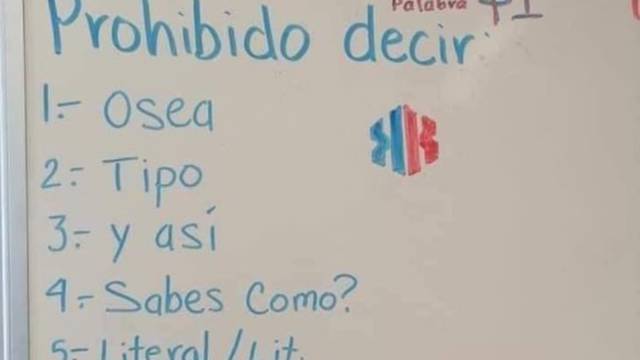 Palabra +1
Prohibido decir:
1.- Osea
2.- Tipo
3.- y así
4.- Sabes Como?
5.- Literal/Lit.